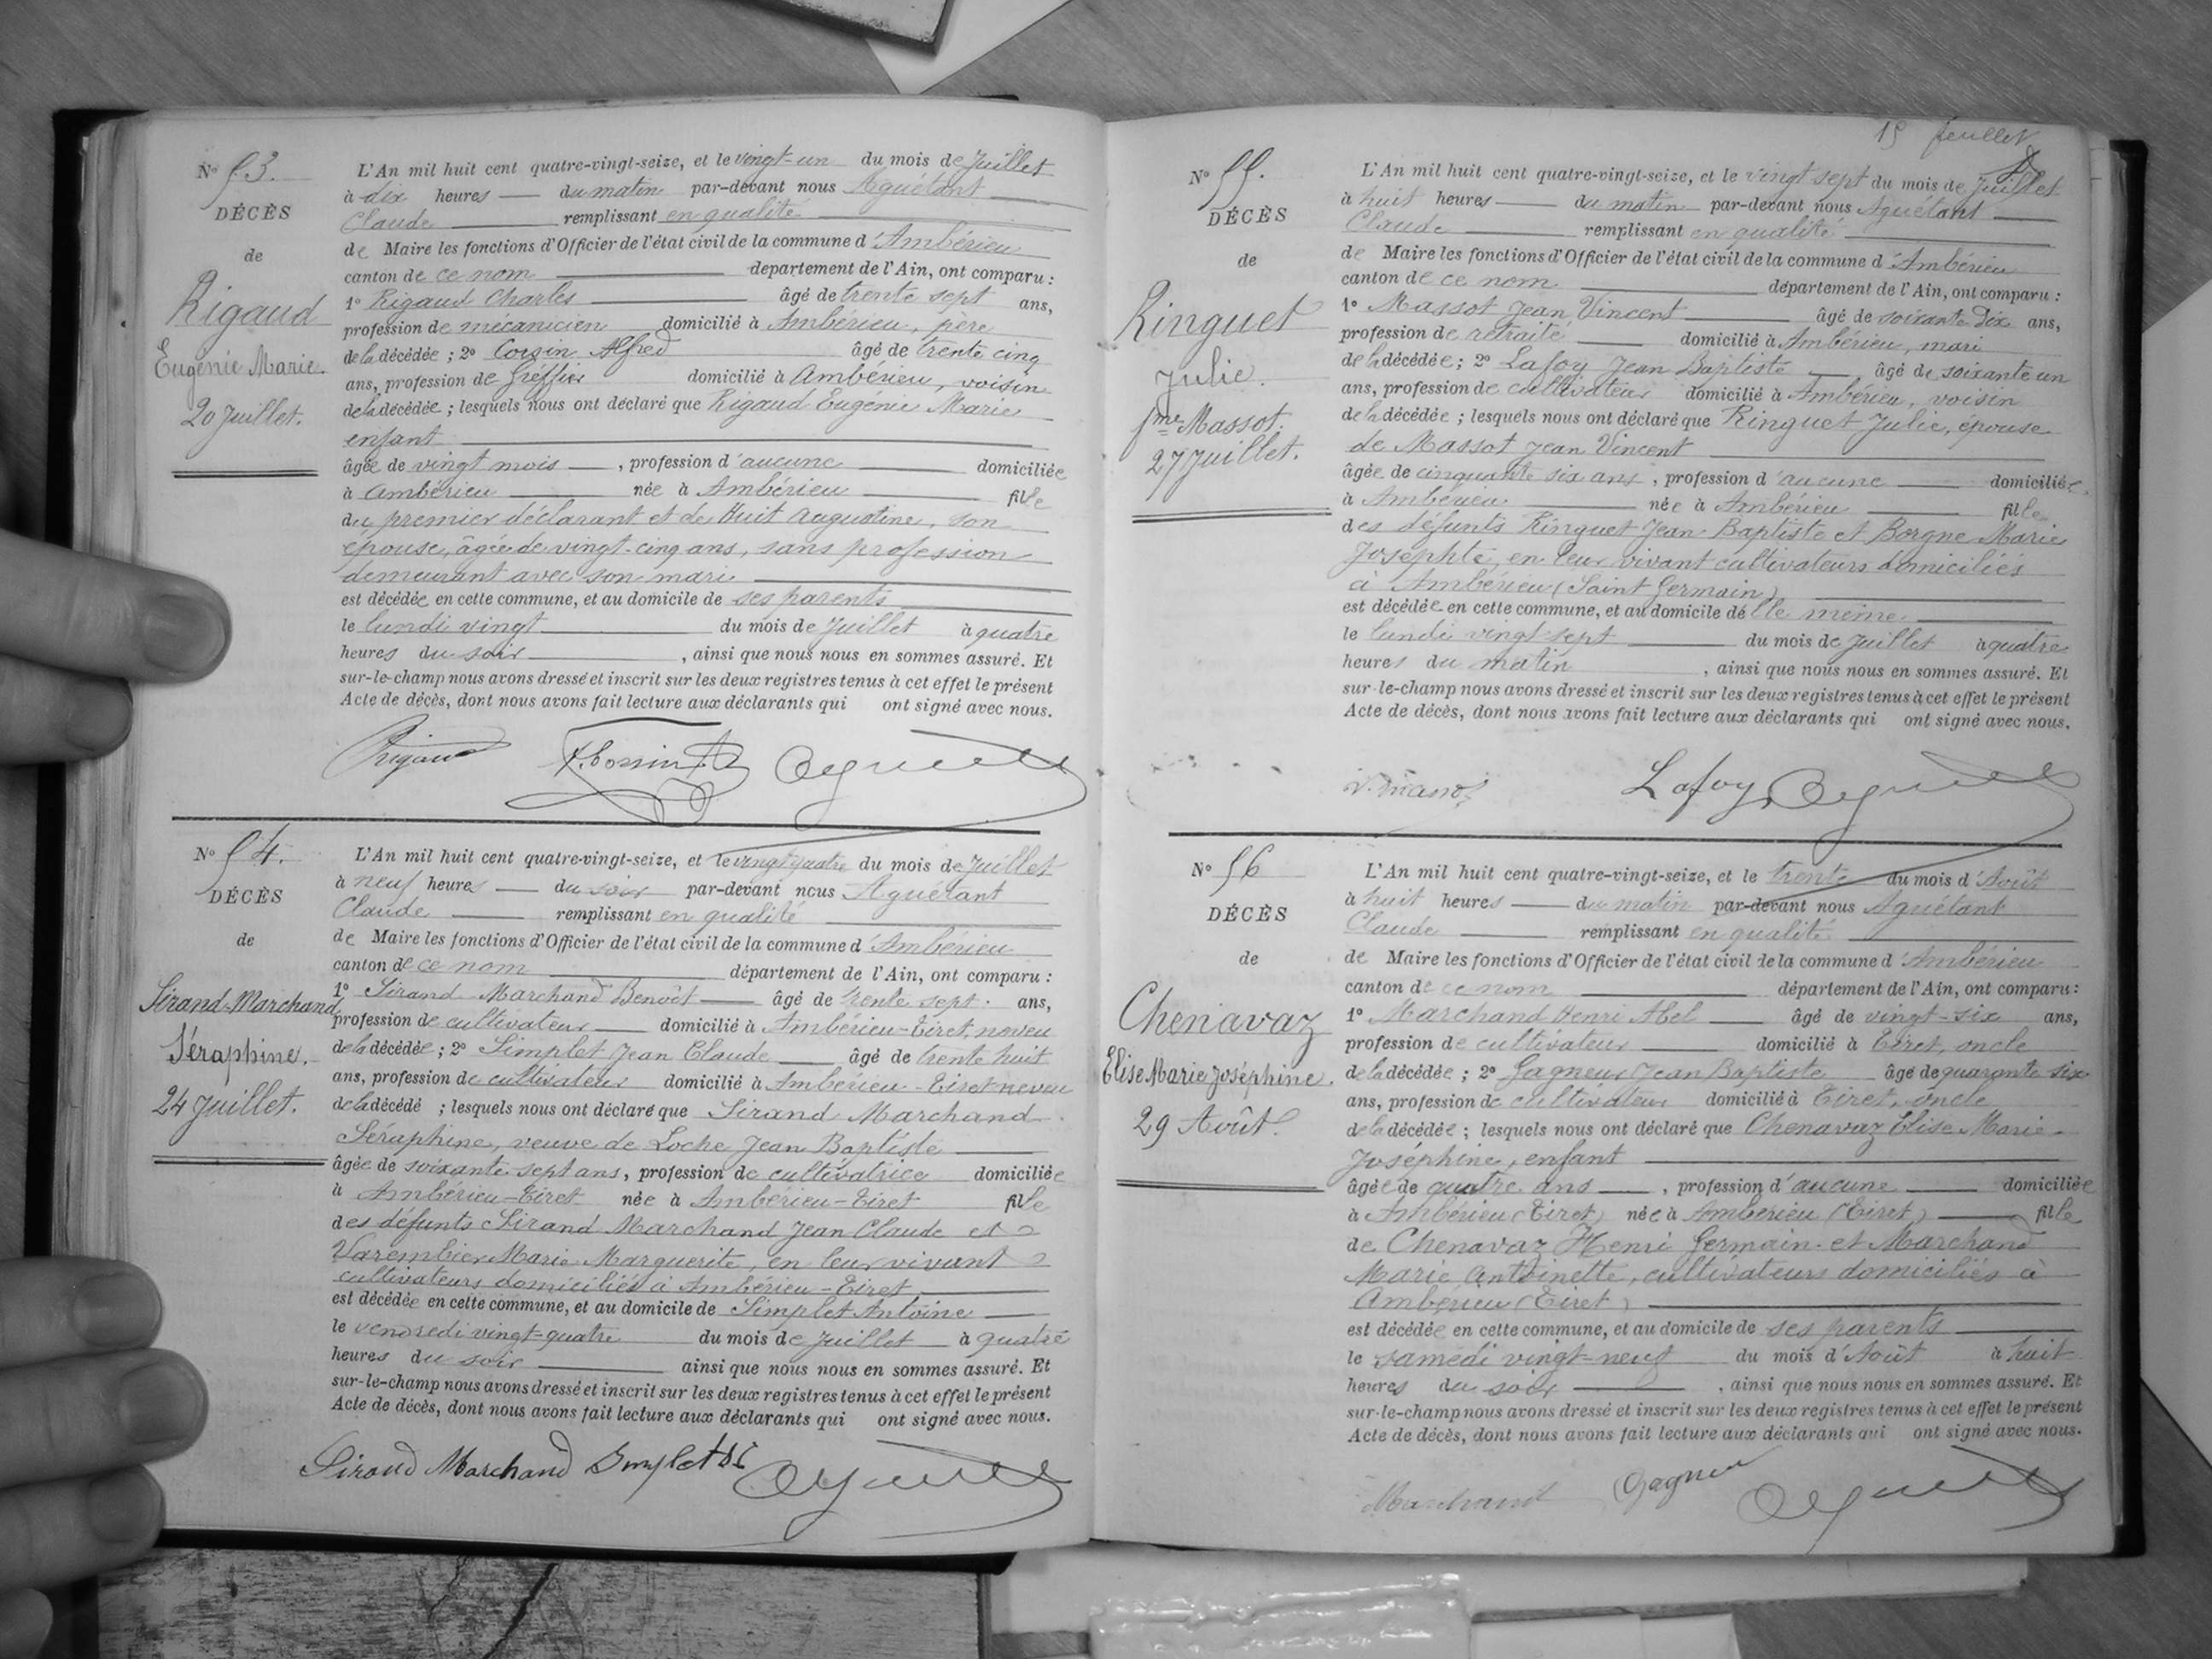 N° 53.
DÉCÈS
de
Rigaud
Eugénie Marie.
20 Juillet.
L'An mil huit cent quatre-vingt-seize, et le vingt-un du mois de Juillet
à dix heures du matin par-devant nous Aguétant
Claude remplissant en qualité
de Maire les fonctions d'Officier de l'état civil de la commune d'Ambérieu
canton de ce nom département de l'Ain, ont comparu :
1° Rigaud Charles âgé de trente sept ans,
profession de mécanicien domicilié à Ambérieu, père
de la décédée ; 2° Corsin Alfred âgé de trente cinq
ans, profession de Greffier domicilié à Ambérieu, voisin
de la décédée ; lesquels nous ont déclaré que Rigaud Eugénie Marie
enfant
âgée de vingt mois, profession d'aucune domiciliée
à Ambérieu née à Ambérieu fille
du premier déclarant et de Huit Augustine, son
épouse, âgée de vingt-cinq ans, sans profession
demeurant avec son mari
est décédée en cette commune, et au domicile de ses parents
le lundi vingt du mois de Juillet à quatre
heures du soir, ainsi que nous nous en sommes assuré. Et
sur-le-champ nous avons dressé et inscrit sur les deux registres tenus à cet effet le présent
Acte de décès, dont nous avons fait lecture aux déclarants qui ont signé avec nous.
Rigaud
N° 54.
DÉCÈS
de
Sirand-Marchand
Séraphine.
24 Juillet.
L'An mil huit cent quatre-vingt-seize, et le vingt quatre du mois de Juillet
à neuf heures du soir par-devant nous Aguétant
Claude remplissant en qualité
de Maire les fonctions d'Officier de l'état civil de la commune d'Ambérieu
canton de ce nom département de l'Ain, ont comparu :
1° Sirand-Marchand Benoît âgé de trente sept ans,
profession de cultivateur domicilié à Ambérieu-Tiret, neveu
de la décédée ; 2° Simplet Jean Claude âgé de trente huit
ans, profession de cultivateur domicilié à Ambérieu-Tiret neveu
de la décédé ; lesquels nous ont déclaré que Sirand Marchand
Séraphine, veuve de Loche Jean Baptiste
âgée de soixante sept ans, profession de cultivatrice domiciliée
à Ambérieu-Tiret née à Ambérieu-Tiret fille
des défunts Sirand Marchand Jean Claude et
Varembier Marie Marguerite, en leur vivant
cultivateurs domiciliés à Ambérieu-Tiret
est décédée en cette commune, et au domicile de Simplet Antoine
le vendredi vingt-quatre du mois de Juillet à quatre
heures du soir ainsi que nous nous en sommes assuré. Et
sur-le-champ nous avons dressé et inscrit sur les deux registres tenus à cet effet le présent
Acte de décès, dont nous avons fait lecture aux déclarants qui ont signé avec nous.
Sirand Marchand Simplet
15 feuillet
N° 55.
DÉCÈS
de
Ringuet
Julie.
fme Massot.
27 Juillet.
L'An mil huit cent quatre-vingt-seize, et le vingt sept du mois de Juillet
à huit heures du matin par-devant nous Aguétant
Claude remplissant en qualité
de Maire les fonctions d'Officier de l'état civil de la commune d'Ambérieu
canton de ce nom département de l'Ain, ont comparu :
1° Massot Jean Vincent âgé de soixante dix ans,
profession de retraité domicilié à Ambérieu, mari
de la décédée ; 2° Lafoy Jean Baptiste âgé de soixante un
ans, profession de cultivateur domicilié à Ambérieu, voisin
de la décédée ; lesquels nous ont déclaré que Ringuet Julie, épouse
de Massot Jean Vincent
âgée de cinquante six ans, profession d'aucune domiciliée
à Ambérieu née à Ambérieu fille
des défunts Ringuet Jean Baptiste et Borgne Marie
Josephte, en leur vivant cultivateurs domiciliés
à Ambérieu (Saint Germain)
est décédée en cette commune, et au domicile d'elle même
le lundi vingt-sept du mois de Juillet à quatre
heures du matin, ainsi que nous nous en sommes assuré. Et
sur-le-champ nous avons dressé et inscrit sur les deux registres tenus à cet effet le présent
Acte de décès, dont nous avons fait lecture aux déclarants qui ont signé avec nous.
Lafoy
N° 56
DÉCÈS
de
Chenavaz
Elise Marie Joséphine.
29 Août.
L'An mil huit cent quatre-vingt-seize, et le trente du mois d'Août
à huit heures du matin par-devant nous Aguétant
Claude remplissant en qualité
de Maire les fonctions d'Officier de l'état civil de la commune d'Ambérieu
canton de ce nom département de l'Ain, ont comparu :
1° Marchand Henri Abel âgé de vingt-six ans,
profession de cultivateur domicilié à Tiret, oncle
de la décédée ; 2° Gagneur Jean Baptiste âgé de quarante six
ans, profession de cultivateur domicilié à Tiret, oncle
de la décédée ; lesquels nous ont déclaré que Chenavaz Elise Marie
Joséphine, enfant
âgée de quatre ans, profession d'aucune domiciliée
à Ambérieu (Tiret) née à Ambérieu (Tiret) fille
de Chenavaz Henri Germain et Marchand
Marie Antoinette, cultivateurs domiciliés à
Ambérieu (Tiret)
est décédée en cette commune, et au domicile de ses parents
le samedi vingt-neuf du mois d'Août à huit
heures du soir, ainsi que nous nous en sommes assuré. Et
sur-le-champ nous avons dressé et inscrit sur les deux registres tenus à cet effet le présent
Acte de décès, dont nous avons fait lecture aux déclarants qui ont signé avec nous.
Marchand Gagneur